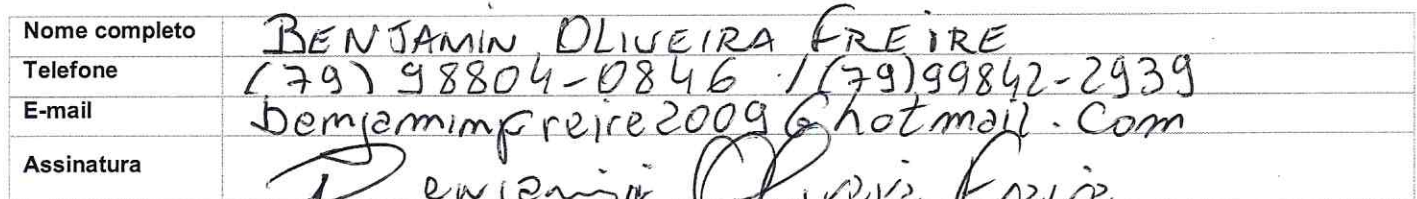 Nome completo BENJAMIN OLIVEIRA FREIRE
Telefone (79) 98804-0846 / (79)99842-2939
E-mail benjaminfreire2009@hotmail.com
Assinatura Benjamin Oliveira Freire